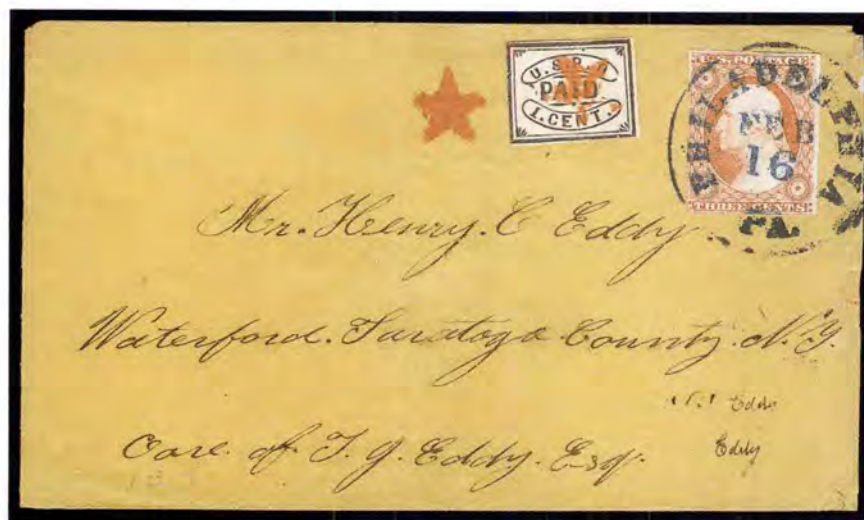 U.S.P.O.
PAID
1. CENT.
U.S. POSTAGE
THREE CENTS
PHILADELPHIA
FEB
16
PA.
Mr. Henry. C Eddy
Waterford. Saratoga County. N. Y.
Eddy
Care. of. T. G. Eddy. Esq.
Eddy